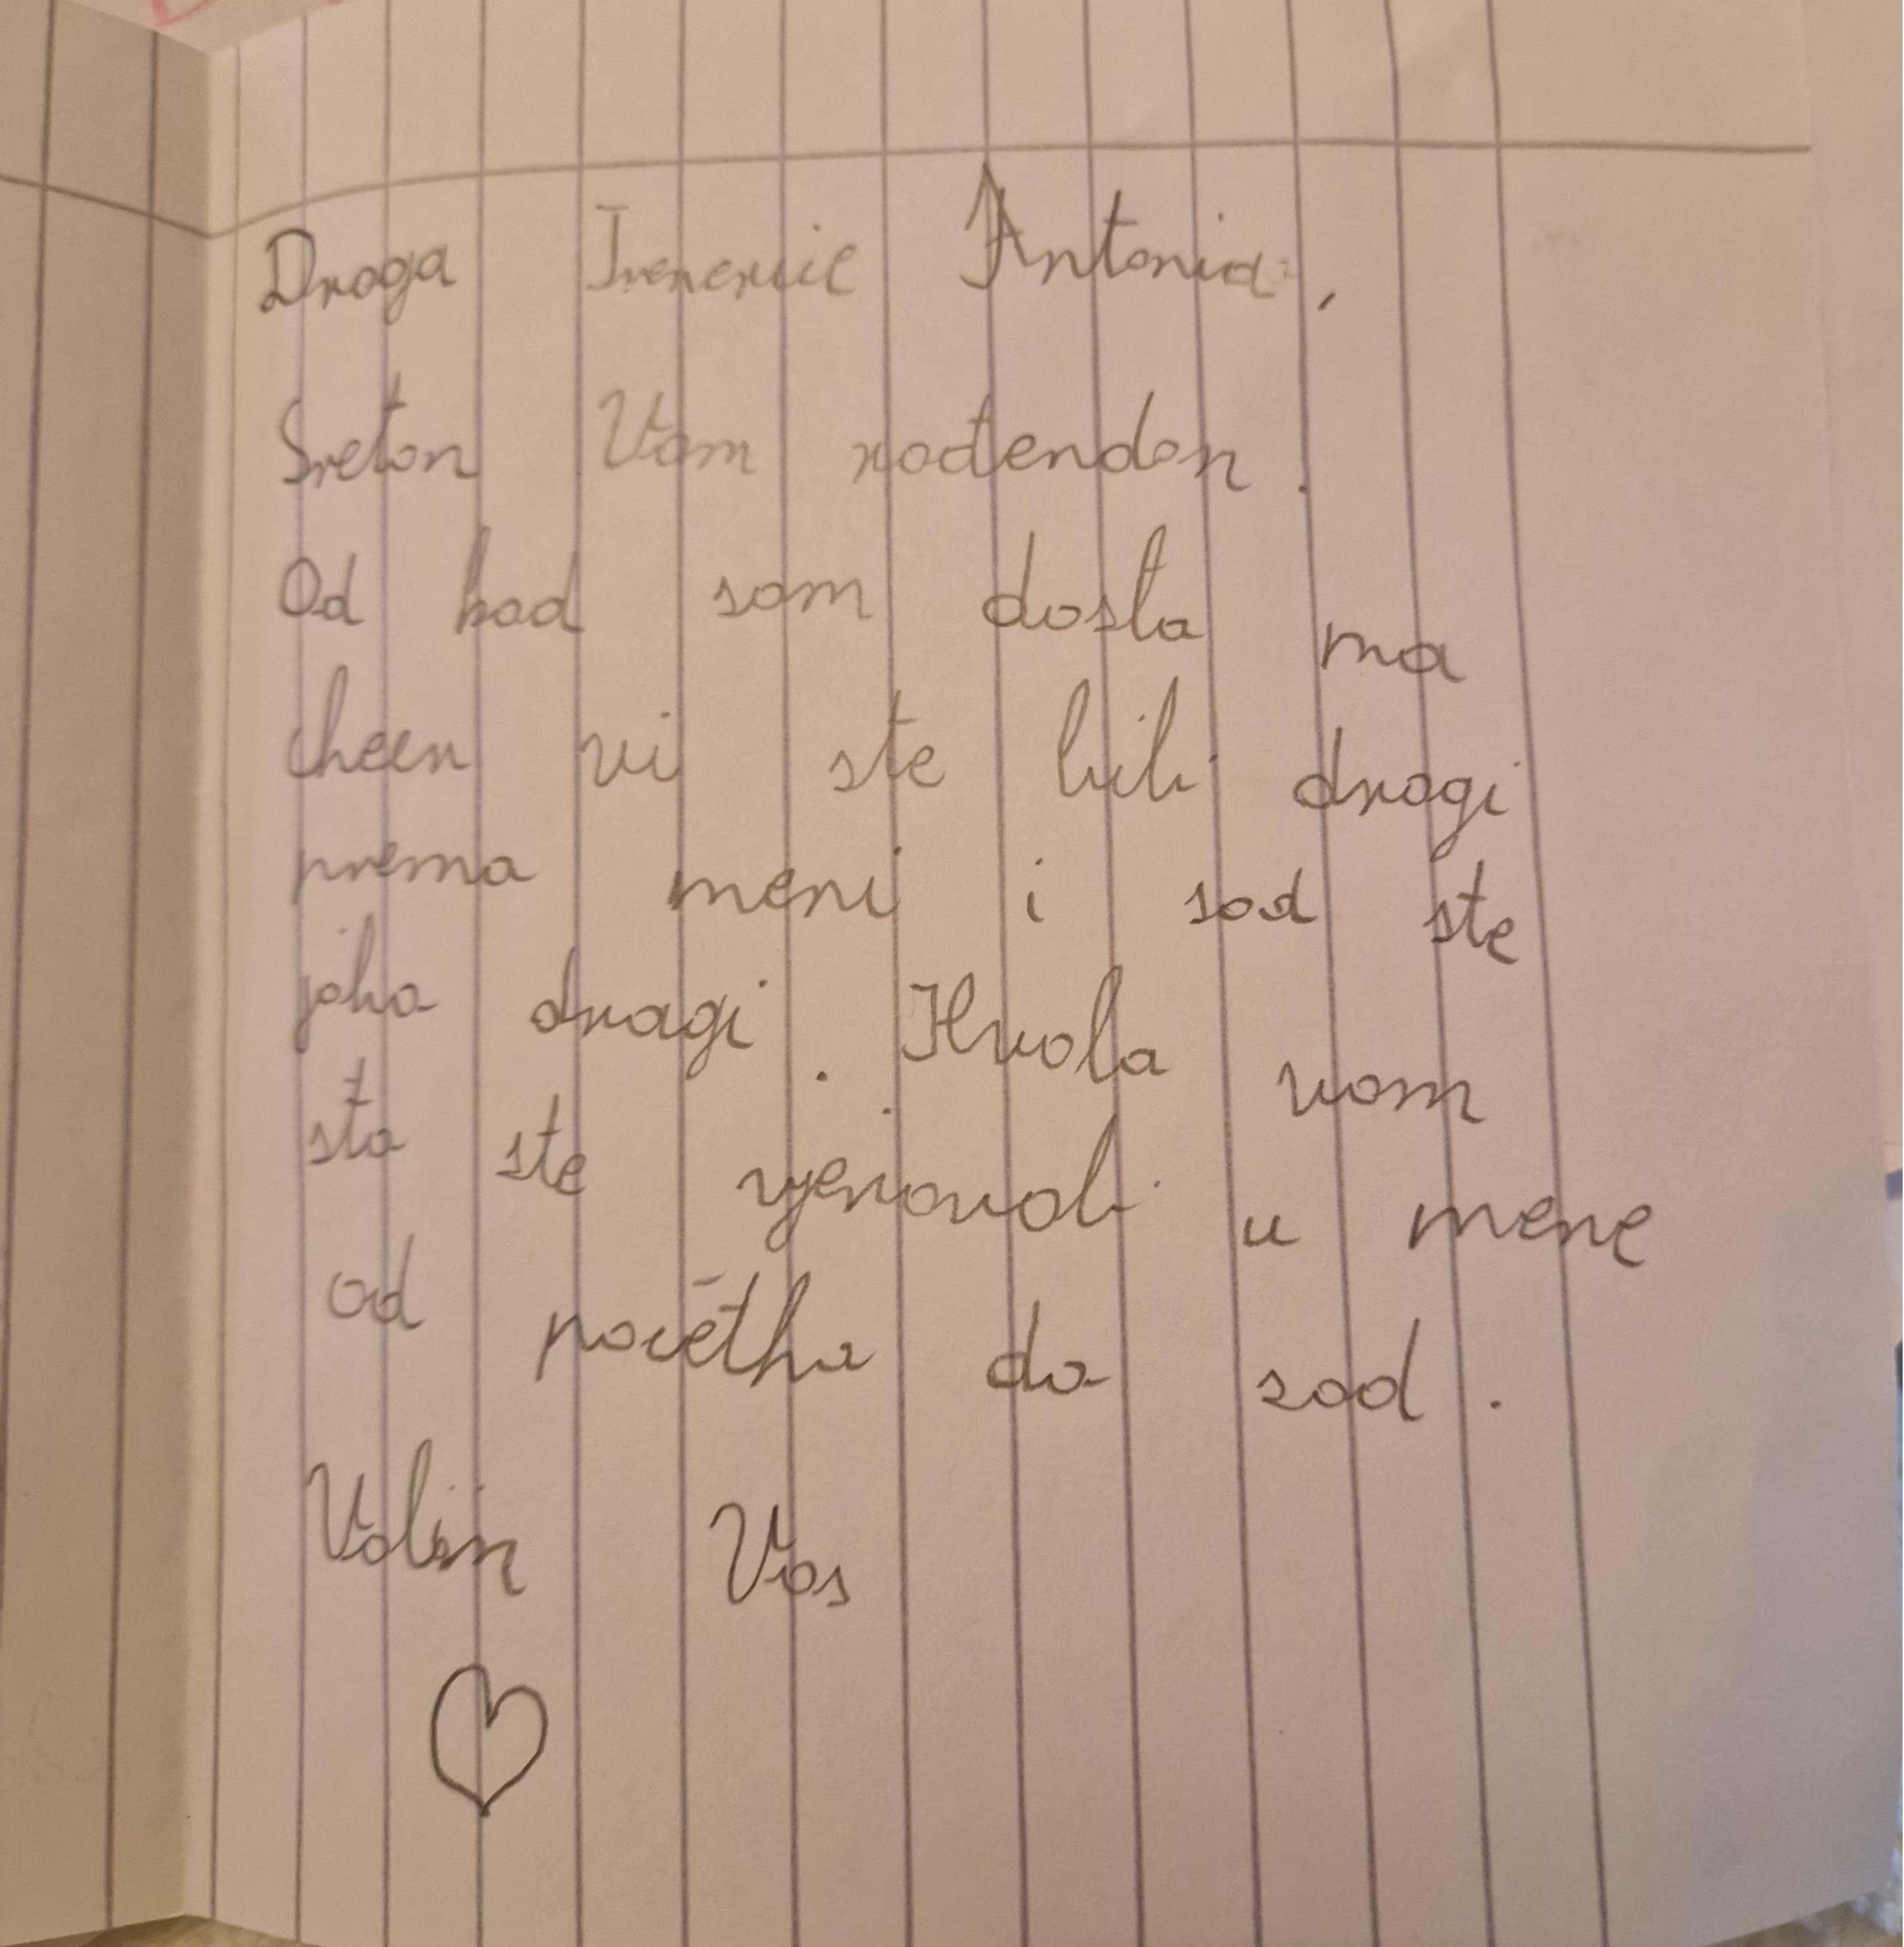 Draga Trenerice Antonia,
Sretan Vam rođendan.
Od kad sam dosla na
cheer vi ste bili dragi
prema meni i sad ste
jako dragi. Hvala vam
sta ste vjerovali u mene
od pocētka do sad.
Volin Vas